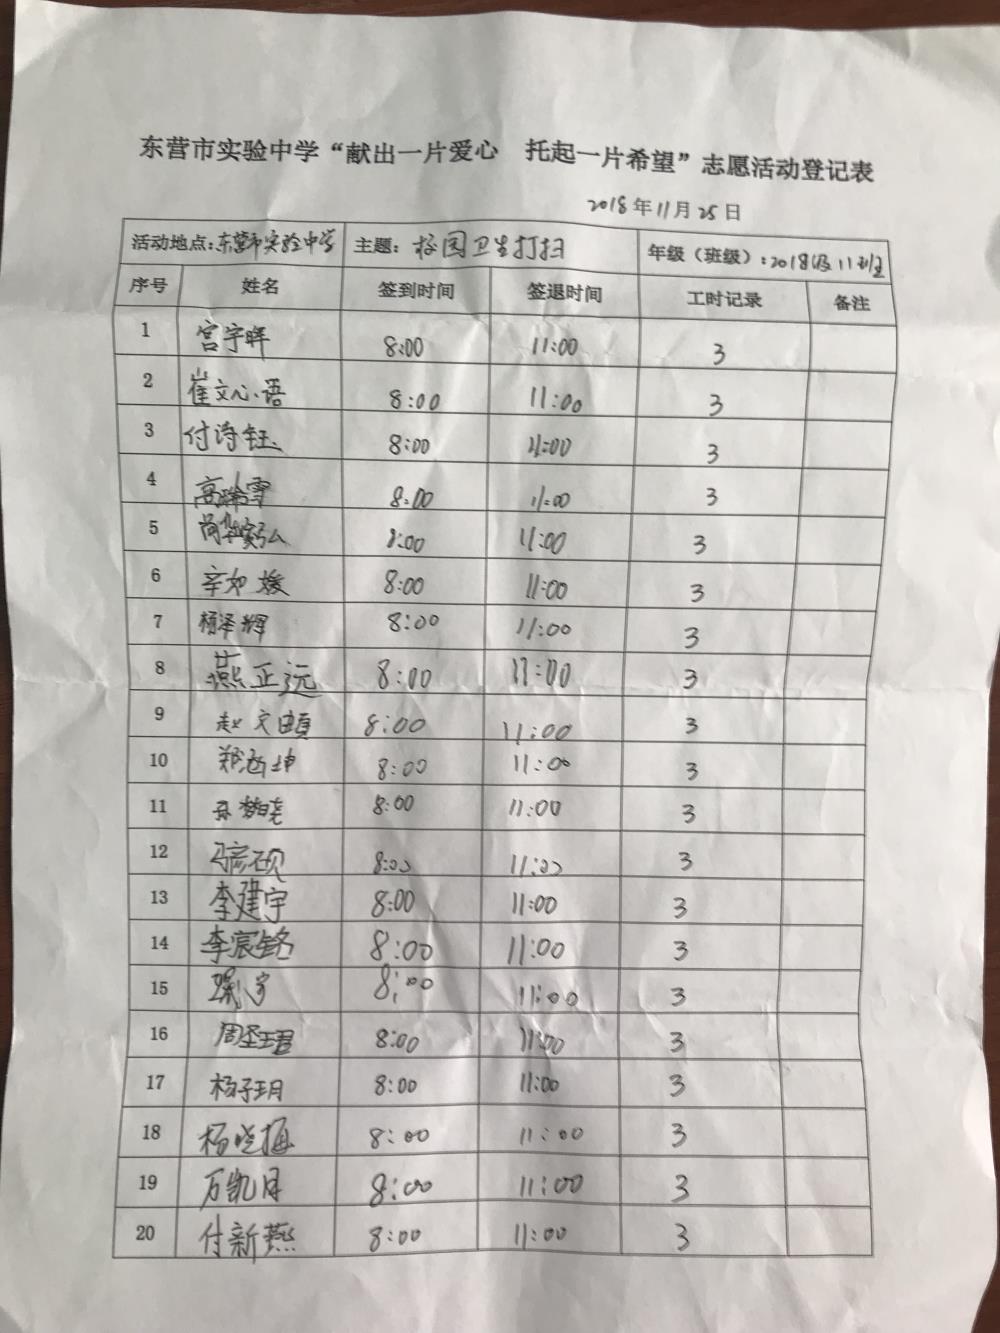 东营市实验中学“献出一片爱心 托起一片希望”志愿活动登记表
2018年11月25日
活动地点:东营市实验中学 主题:校园卫生打扫 年级（班级）:2018级11班
序号 姓名 签到时间 签退时间 工时记录 备注
1 宫宇晖 8:00 11:00 3
2 崔文心语 8:00 11:00 3
3 付诗钰 8:00 11:00 3
4 高瑜雪 8:00 11:00 3
5 8:00 11:00 3
6 辛如媛 8:00 11:00 3
7 杨泽辉 8:00 11:00 3
8 燕正远 8:00 11:00 3
9 赵文 8:00 11:00 3
10 郑 坤 8:00 11:00 3
11 孙 8:00 11:00 3
12 冯彦硕 8:00 11:00 3
13 李建宇 8:00 11:00 3
14 李宸铭 8:00 11:00 3
15 8:00 11:00 3
16 周圣珺 8:00 11:00 3
17 杨子玥 8:00 11:00 3
18 杨晓梅 8:00 11:00 3
19 万凯月 8:00 11:00 3
20 付新燕 8:00 11:00 3